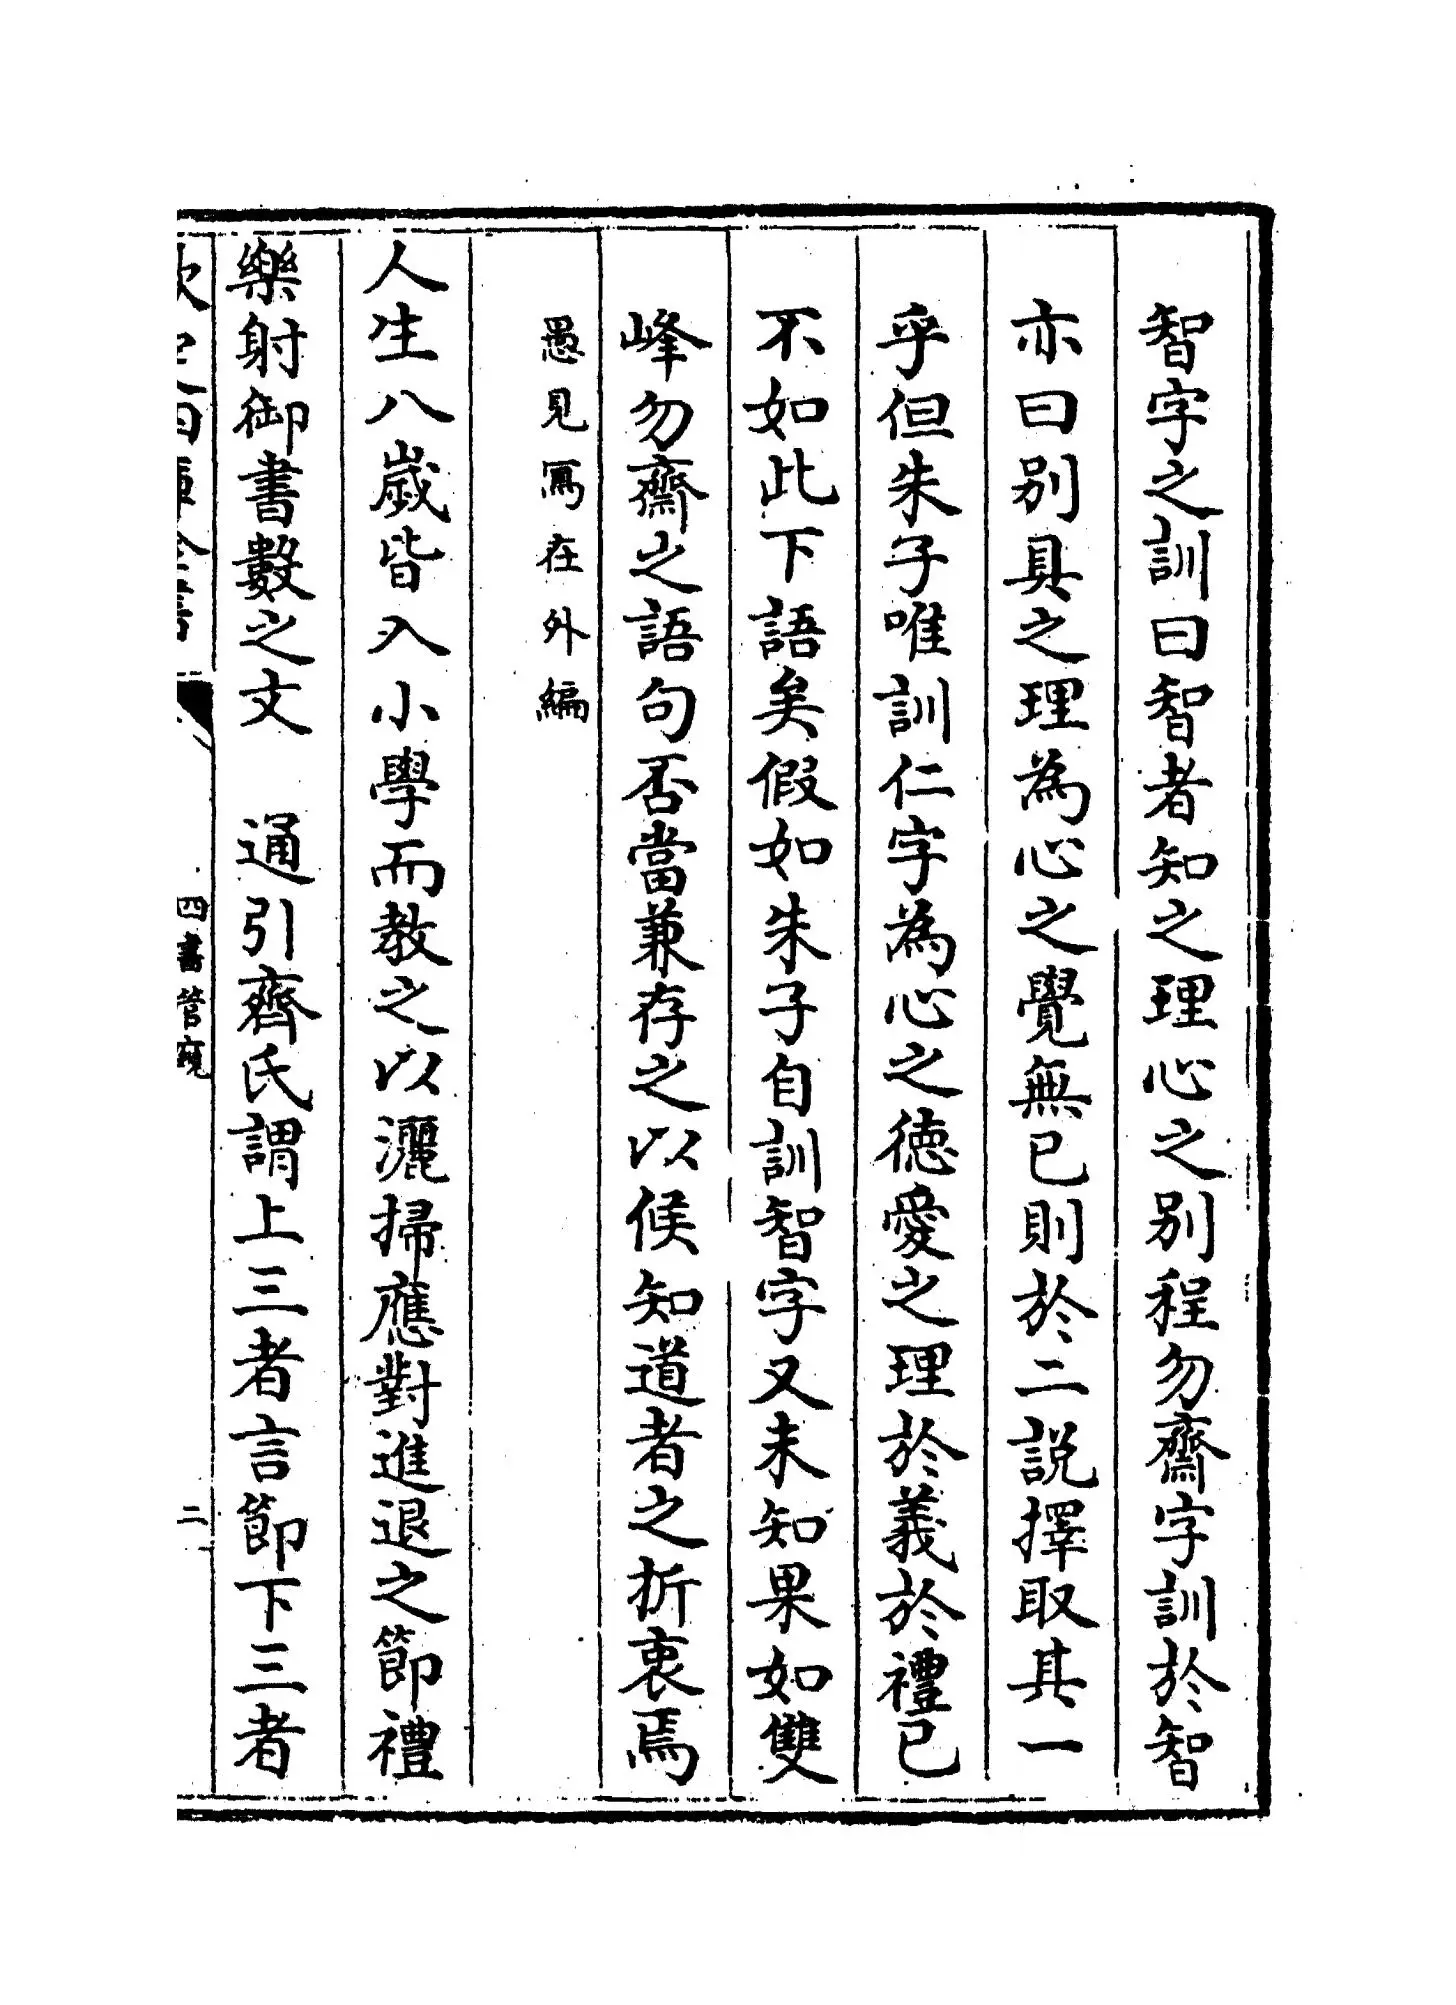 智字之訓曰智者知之理心之別程勿齋字訓於智
亦曰別具之理為心之覺無已則於二說擇取其一
乎但朱子唯訓仁字為心之德愛之理於義於禮已
不如此下語矣假如朱子自訓智字又未知果如雙
峰勿齋之語句否當兼存之以候知道者之折衷焉
愚見寫在外編
人生八歲皆入小學而教之以灑掃應對進退之節禮
樂射御書數之文　通引齊氏謂上三者言節下三者
欽定四庫全書
四書管窺
二